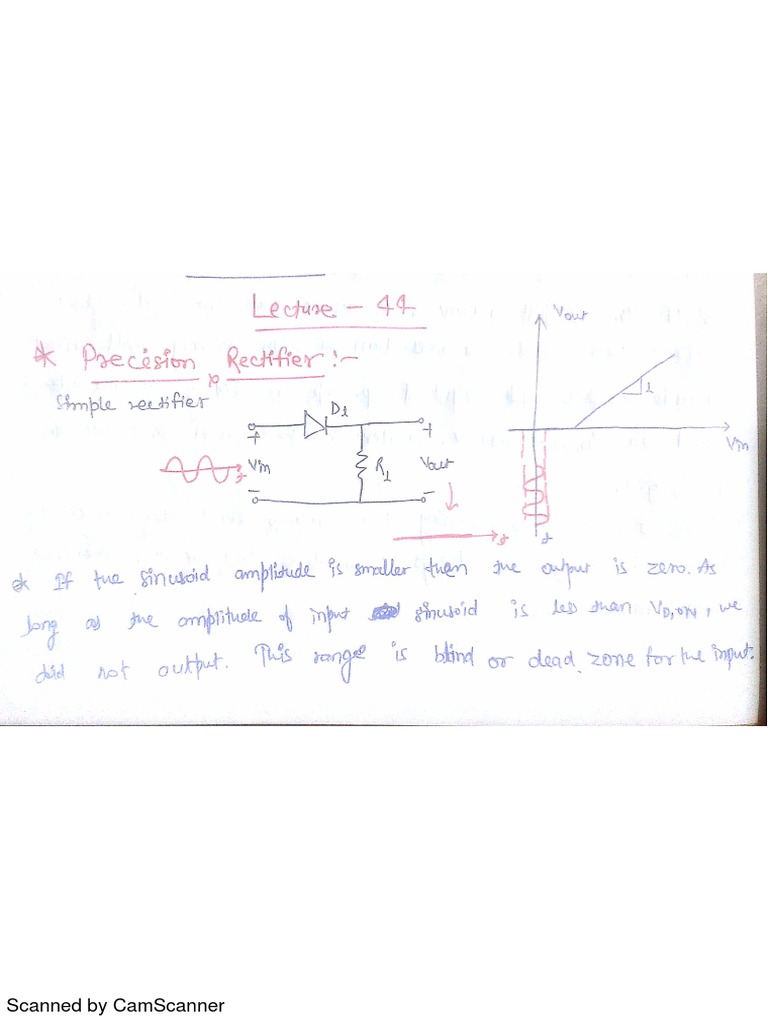 Lecture - 44
* Precision Rectifier :-
Simple rectifier
D1
+
+
Vin
R1
Vout
-
-
t
t
Vout
1
Vin
t
* If the sinusoid amplitude is smaller then the output is zero. As
long as the amplitude of input sinusoid is less than VD,ON, we
did not output. This range is blind or dead zone for the input.
Scanned by CamScanner